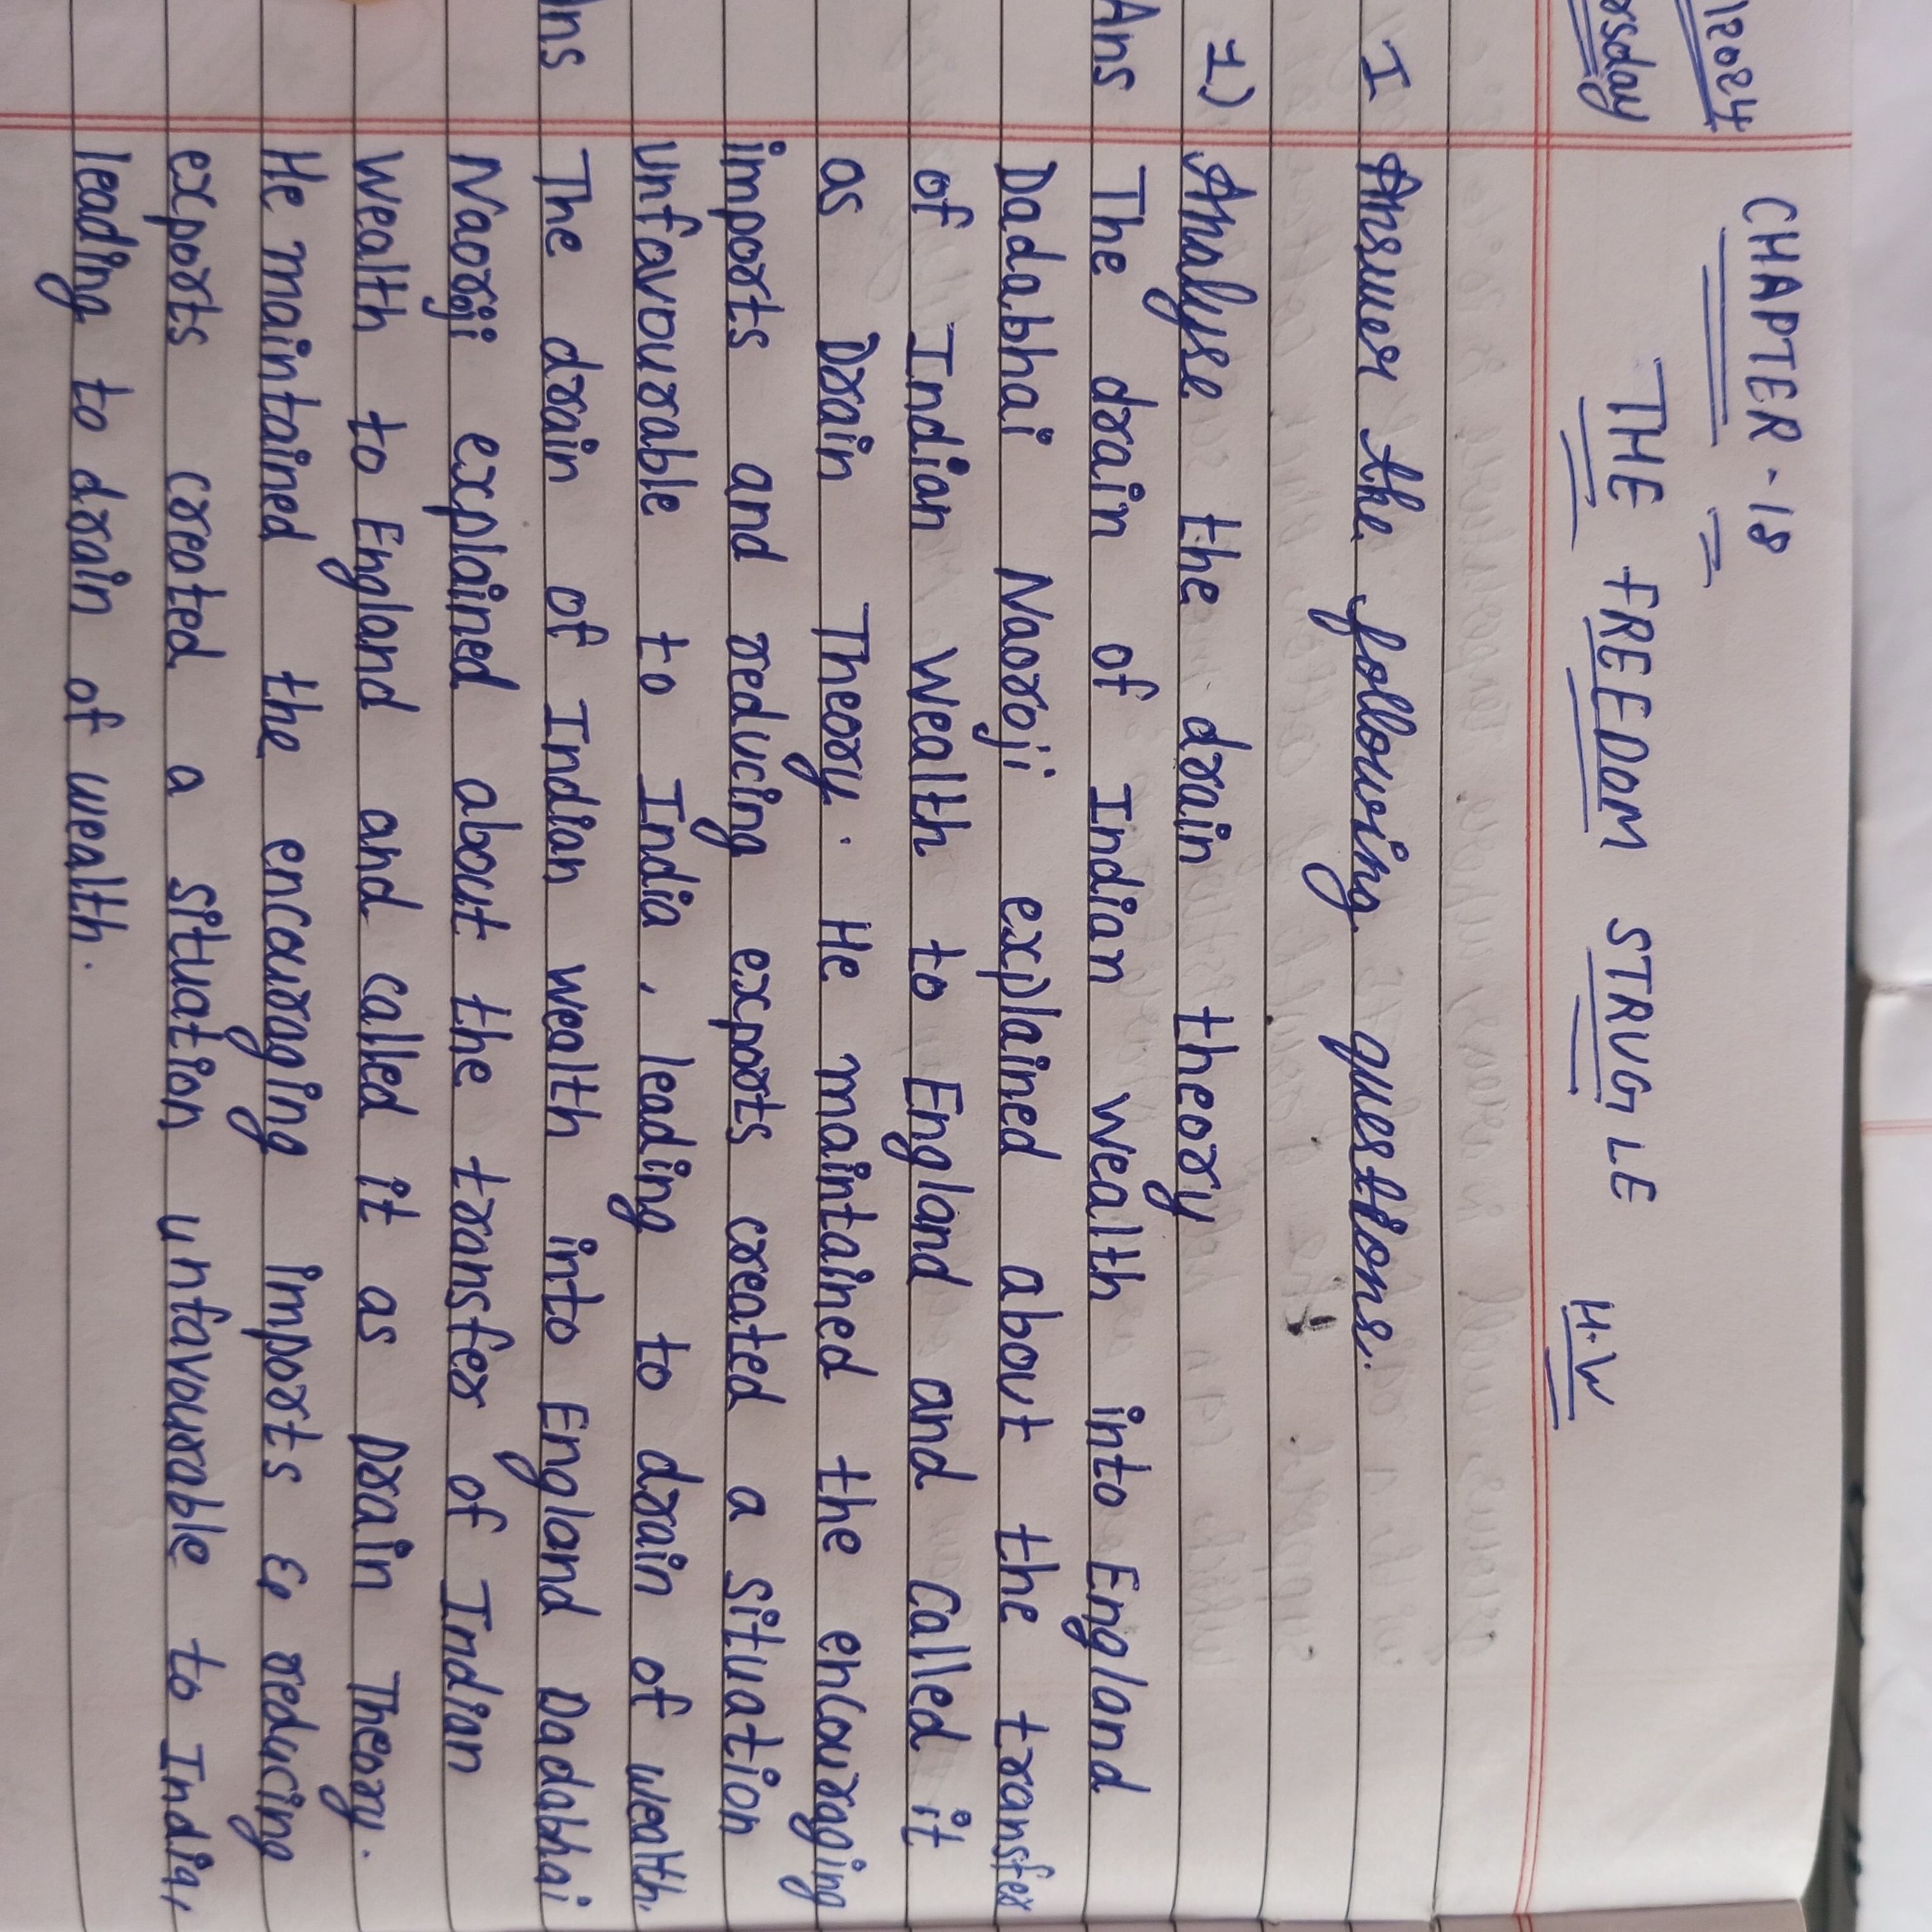 12024
CHAPTER-18
rsday
THE FREEDOM STRUGLE H.W
I Answer the following questions.
1) Analyse the drain theory
Ans The drain of Indian wealth into England
Dadabhai Naoroji explained about the transfer
of Indian wealth to England and called it
as Drain Theory. He maintained the encouraging
imports and reducing exports created a situation
unfavourable to India, leading to drain of wealth.
Ans The drain of Indian wealth into England Dadabhai
Naorji explained about the transfer of Indian
wealth to England and called it as Drain Theory.
He maintained the encouraging imports & reducing
exports created a situation unfavourable to India,
leading to drain of wealth.